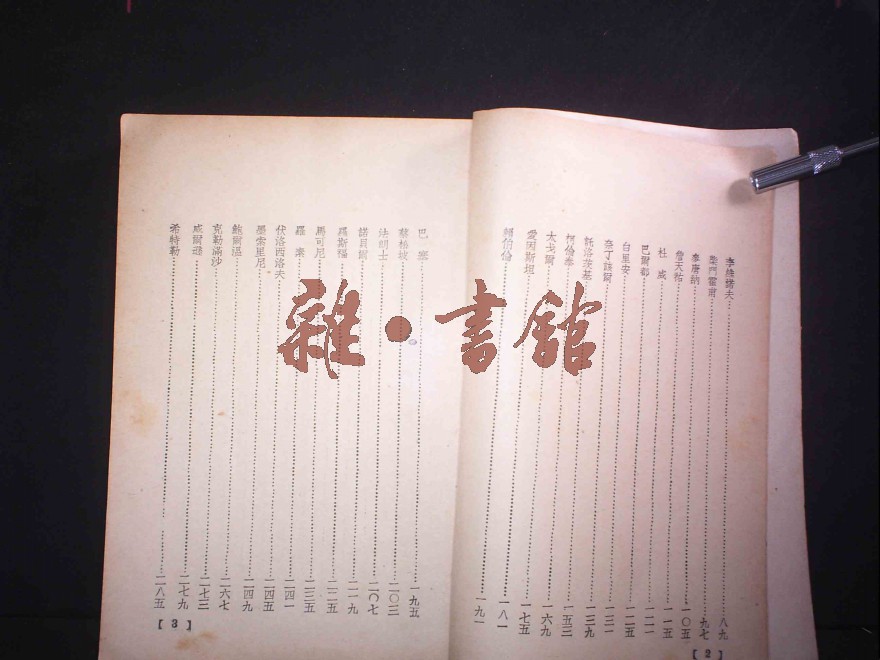 李維諾夫……八九
柴門霍甫……九七
麥唐納……一〇五
詹天佑……一一五
杜威……一二一
巴爾都……一二五
白里安……一三一
泰丁諾爾……一三九
託洛茨基……一五三
柯倫泰……一六九
太戈爾……一七五
愛因斯坦……一八一
賴伯倫……一九一
[2]
巴塞……一九五
蔡柏坡……二〇三
法朗士……二〇七
諾貝爾……二一九
羅斯福……二二五
馬可尼……二三五
羅素……二四一
伏洛西洛夫……二四五
墨索里尼……二四九
鮑爾溫……二六七
克勒滿沙……二七三
威爾遜……二七九
希特勒……二八五
[3]
雜·書館